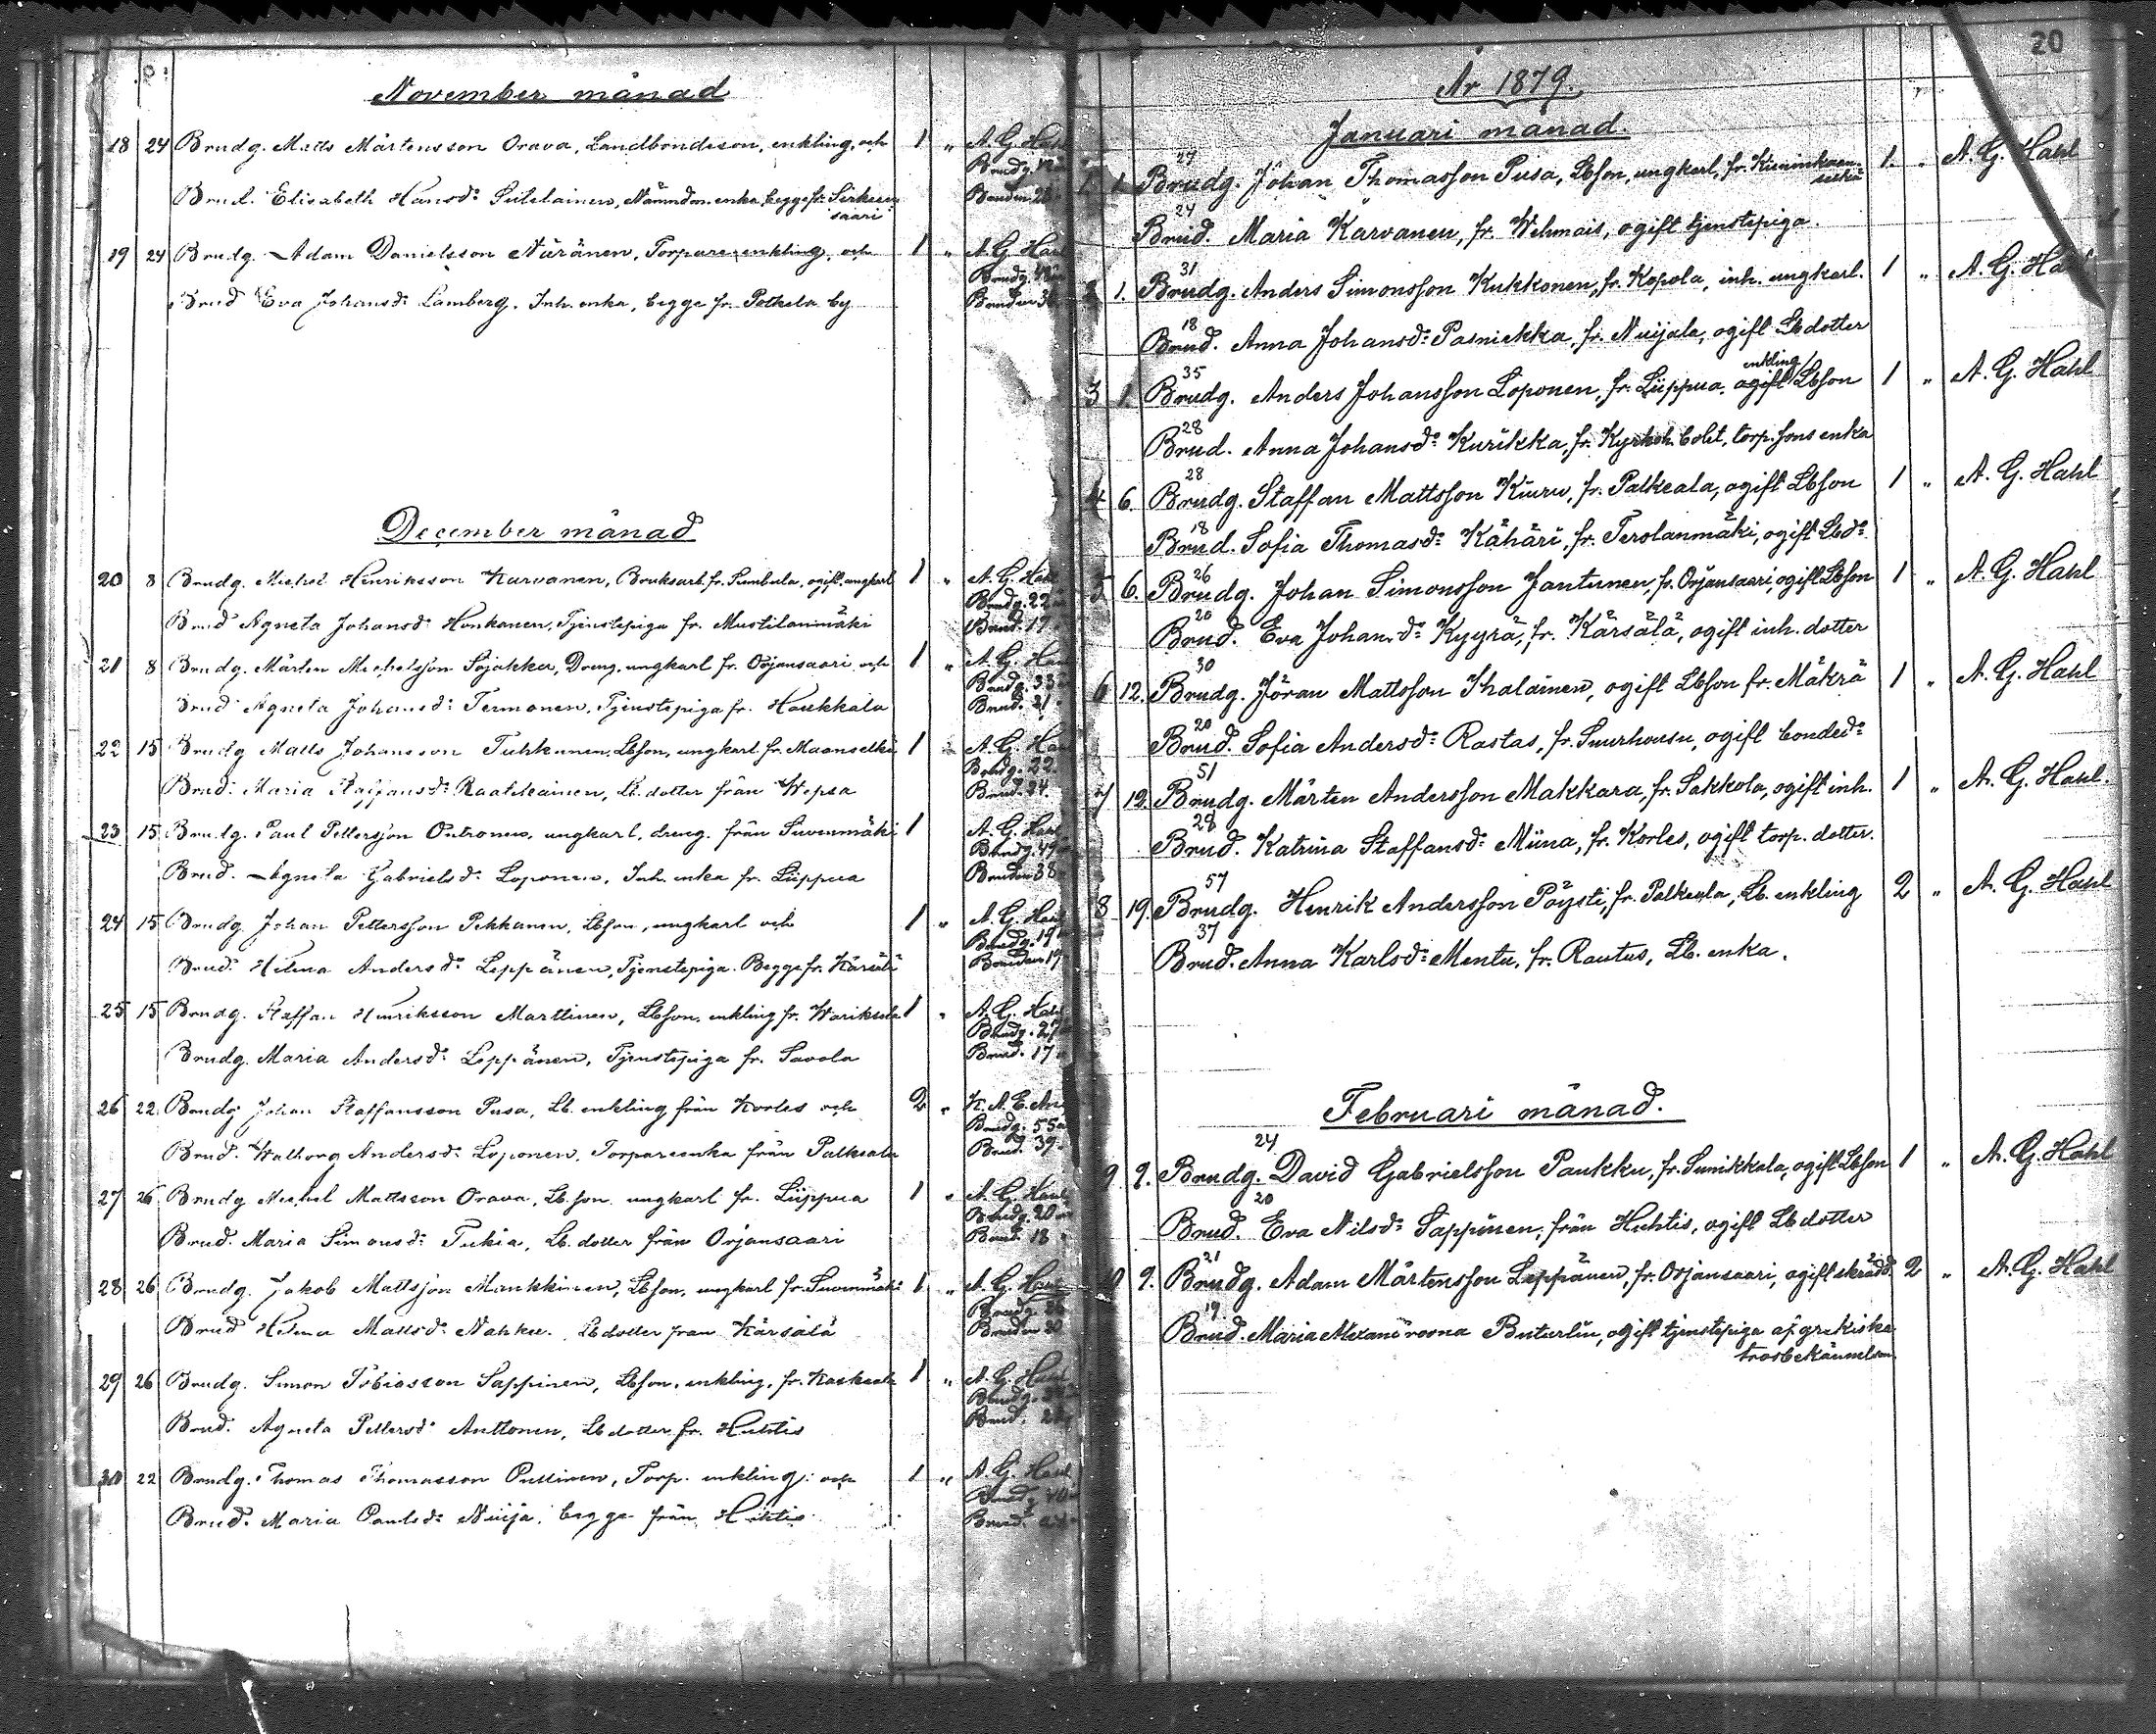 November månad
18 24 Brudg. Matts Mårtensson Orava, Landbondeson, enkling, och 1 " A. G. Hahl
Brudg.
Brud. Elisabeth Hansd: Sutelainen, Nämndm. enka, begge fr. Sirkeen
saari
Bruden
19 24 Brudg. Adam Danielsson Näränen, Torpare, enkling, och 1 " A. G. Hahl
Brudg.
Brud Eva Johansd: Lamberg. Inh. enka, begge fr. Potkela by
Bruden
December månad
20 8 Brudg. Michel Henriksson Karvanen, Bruksarb. fr. Sumbula, ogift, ungkarl 1 " A. G. Hahl
Brudg. 22
Brud Agneta Johansd: Honkanen, Tjenstepiga fr. Mustilanmäki
Brud. 19
21 8 Brudg. Mårten Michelsson Sojakka, Dreng, ungkarl fr. Orjansaari och 1 " A. G. Hahl
Brudg. 33
Brud Agneta Johansd: Termonen, Tjenstepiga fr. Haukkala
Brud. 21
22 15 Brudg Matts Johansson Tuhkunen, Lbson, ungkarl fr. Maanselkä 1 " A. G. Hahl
Brudg. 22.
Brud. Maria Staffansd: Raatikainen, Lb. dotter från Wepsa
Brud. 24.
23 15 Brudg. Paul Pettersson Outronen, ungkarl, dreng. från Suvenmäki 1 A. G. Hahl
Brudg. 49
Brud. Agneta Gabrielsd: Loponen, Inh. enka fr. Liippua
Bruden 38
24 15 Brudg Johan Pettersson Pekkanen, Lbson, ungkarl och 1 " A. G. Hahl
Brudg. 19
Brud. Helena Andersd: Leppänen, Tjenstepiga. Begge fr. Kärsälä
Bruden 19
25 15 Brudg. Staffan Henriksson Marttinen, Lbson, enkling fr. Warikselä 1 " A. G. Hahl
Brudg. 27
Brudg. Maria Andersd: Leppänen, Tjenstepiga fr. Savola
Brud. 17
26 22 Brudg Johan Staffansson Pusa, Lb. enkling från Korles och 2 " K. A. E. An
Brudg. 55
Brud. Walborg Andersd: Loponen, Torpareenka från Palkeala
Brud. 39.
27 26 Brudg Michel Mattsson Orava, Lb. son. ungkarl fr. Liippua 1 " A. G. Hahl
Brudg. 20
Brud. Maria Simonsd: Tukia, Lb. dotter från Orjansaari
Brud. 18
28 26 Brudg. Jakob Mattsson Mankkinen, Lbson, ungkarl fr. Suvenmäki 1 " A. G. Hahl
Brudg.
Brud Helena Mattsd: Nahku. Lb dotter från Kärsälä
Bruden 20
29 26 Brudg. Simon Tobiasson Sappinen, Lbson, enkling, fr. Kaskaala 1 " A. G. Hahl
Brudg.
Brud. Agneta Pettersd: Anttonen, Lb dotter fr. Huhtis
Brud.
30 22 Brudg. Thomas Thomasson Puttinen, Torp. enkling och 1 " A. G. Hahl
Brudg. 40
Brud. Maria Paulsd: Nuija, begge från Huhtis
Brud.
20
År 1879.
Januari månad.
27
1 1 Brudg. Johan Thomasson Pusa, Lbson, ungkarl, fr. Kuninkaan- 1. " A. G. Hahl
selkä
24
Brud. Maria Karvanen, fr. Wehmais, ogift tjenstepiga.
31
2 1. Brudg. Anders Simonsson Kukkonen, fr. Kopola, inh. ungkarl. 1 " A. G. Hahl
18
Brud. Anna Johansd: Pasniekka, fr. Nuijala, ogift Lb dotter
35 enkling
3 1. Brudg. Anders Johansson Loponen, fr. Liippua, ogift Lbson 1 " A. G. Hahl
28
Brud. Anna Johansd: Kurikka, fr. Kyrkoh. bolet, torp. sons enka
28
4 6 Brudg. Staffan Mattsson Kiuru, fr. Palkeala, ogift Lbson 1 " A. G. Hahl
18
Brud. Sofia Thomasd: Kähäri, fr. Terolanmäki, ogift Lbd:
26
5 6. Brudg. Johan Simonsson Jantunen, fr. Orjansaari, ogift Lbson 1 " A. G. Hahl
20
Brud. Eva Johansd: Kyyrä, fr. Kärsälä, ogift inh. dotter
30
6 12. Brudg. Jöran Mattsson Ihalainen, ogift Lbson fr. Mäkrä 1 " A. G. Hahl
20
Brud. Sofia Andersd: Rastas, fr. Suurhousu, ogift bonded:
51
7 12. Brudg. Mårten Andersson Makkara, fr. Sakkola, ogift inh. 1 " A. G. Hahl.
28
Brud. Katrina Staffansd: Miina, fr. Korles, ogift torp. dotter.
57
8 19. Brudg. Henrik Andersson Pöysti, fr. Palkeala, Lb. enkling 2 " A. G. Hahl
37
Brud. Anna Karlsd: Mentu, fr. Rautus, Lb. enka.
Februari månad.
24
9 9. Brudg. David Gabrielsson Paukku, fr. Sunikkala, ogift Lbson 1 " A. G. Hahl
20
Brud. Eva Nilsd: Sappinen, från Huhtis, ogift Lb dotter
21
10 9. Brudg. Adam Mårtensson Leppänen, fr. Orjansaari, ogift skrädd. 2 " A. G. Hahl
19
Brud. Maria Alexandrovna Buturlin, ogift tjenstepiga af grekiska
trosbekännelsen.